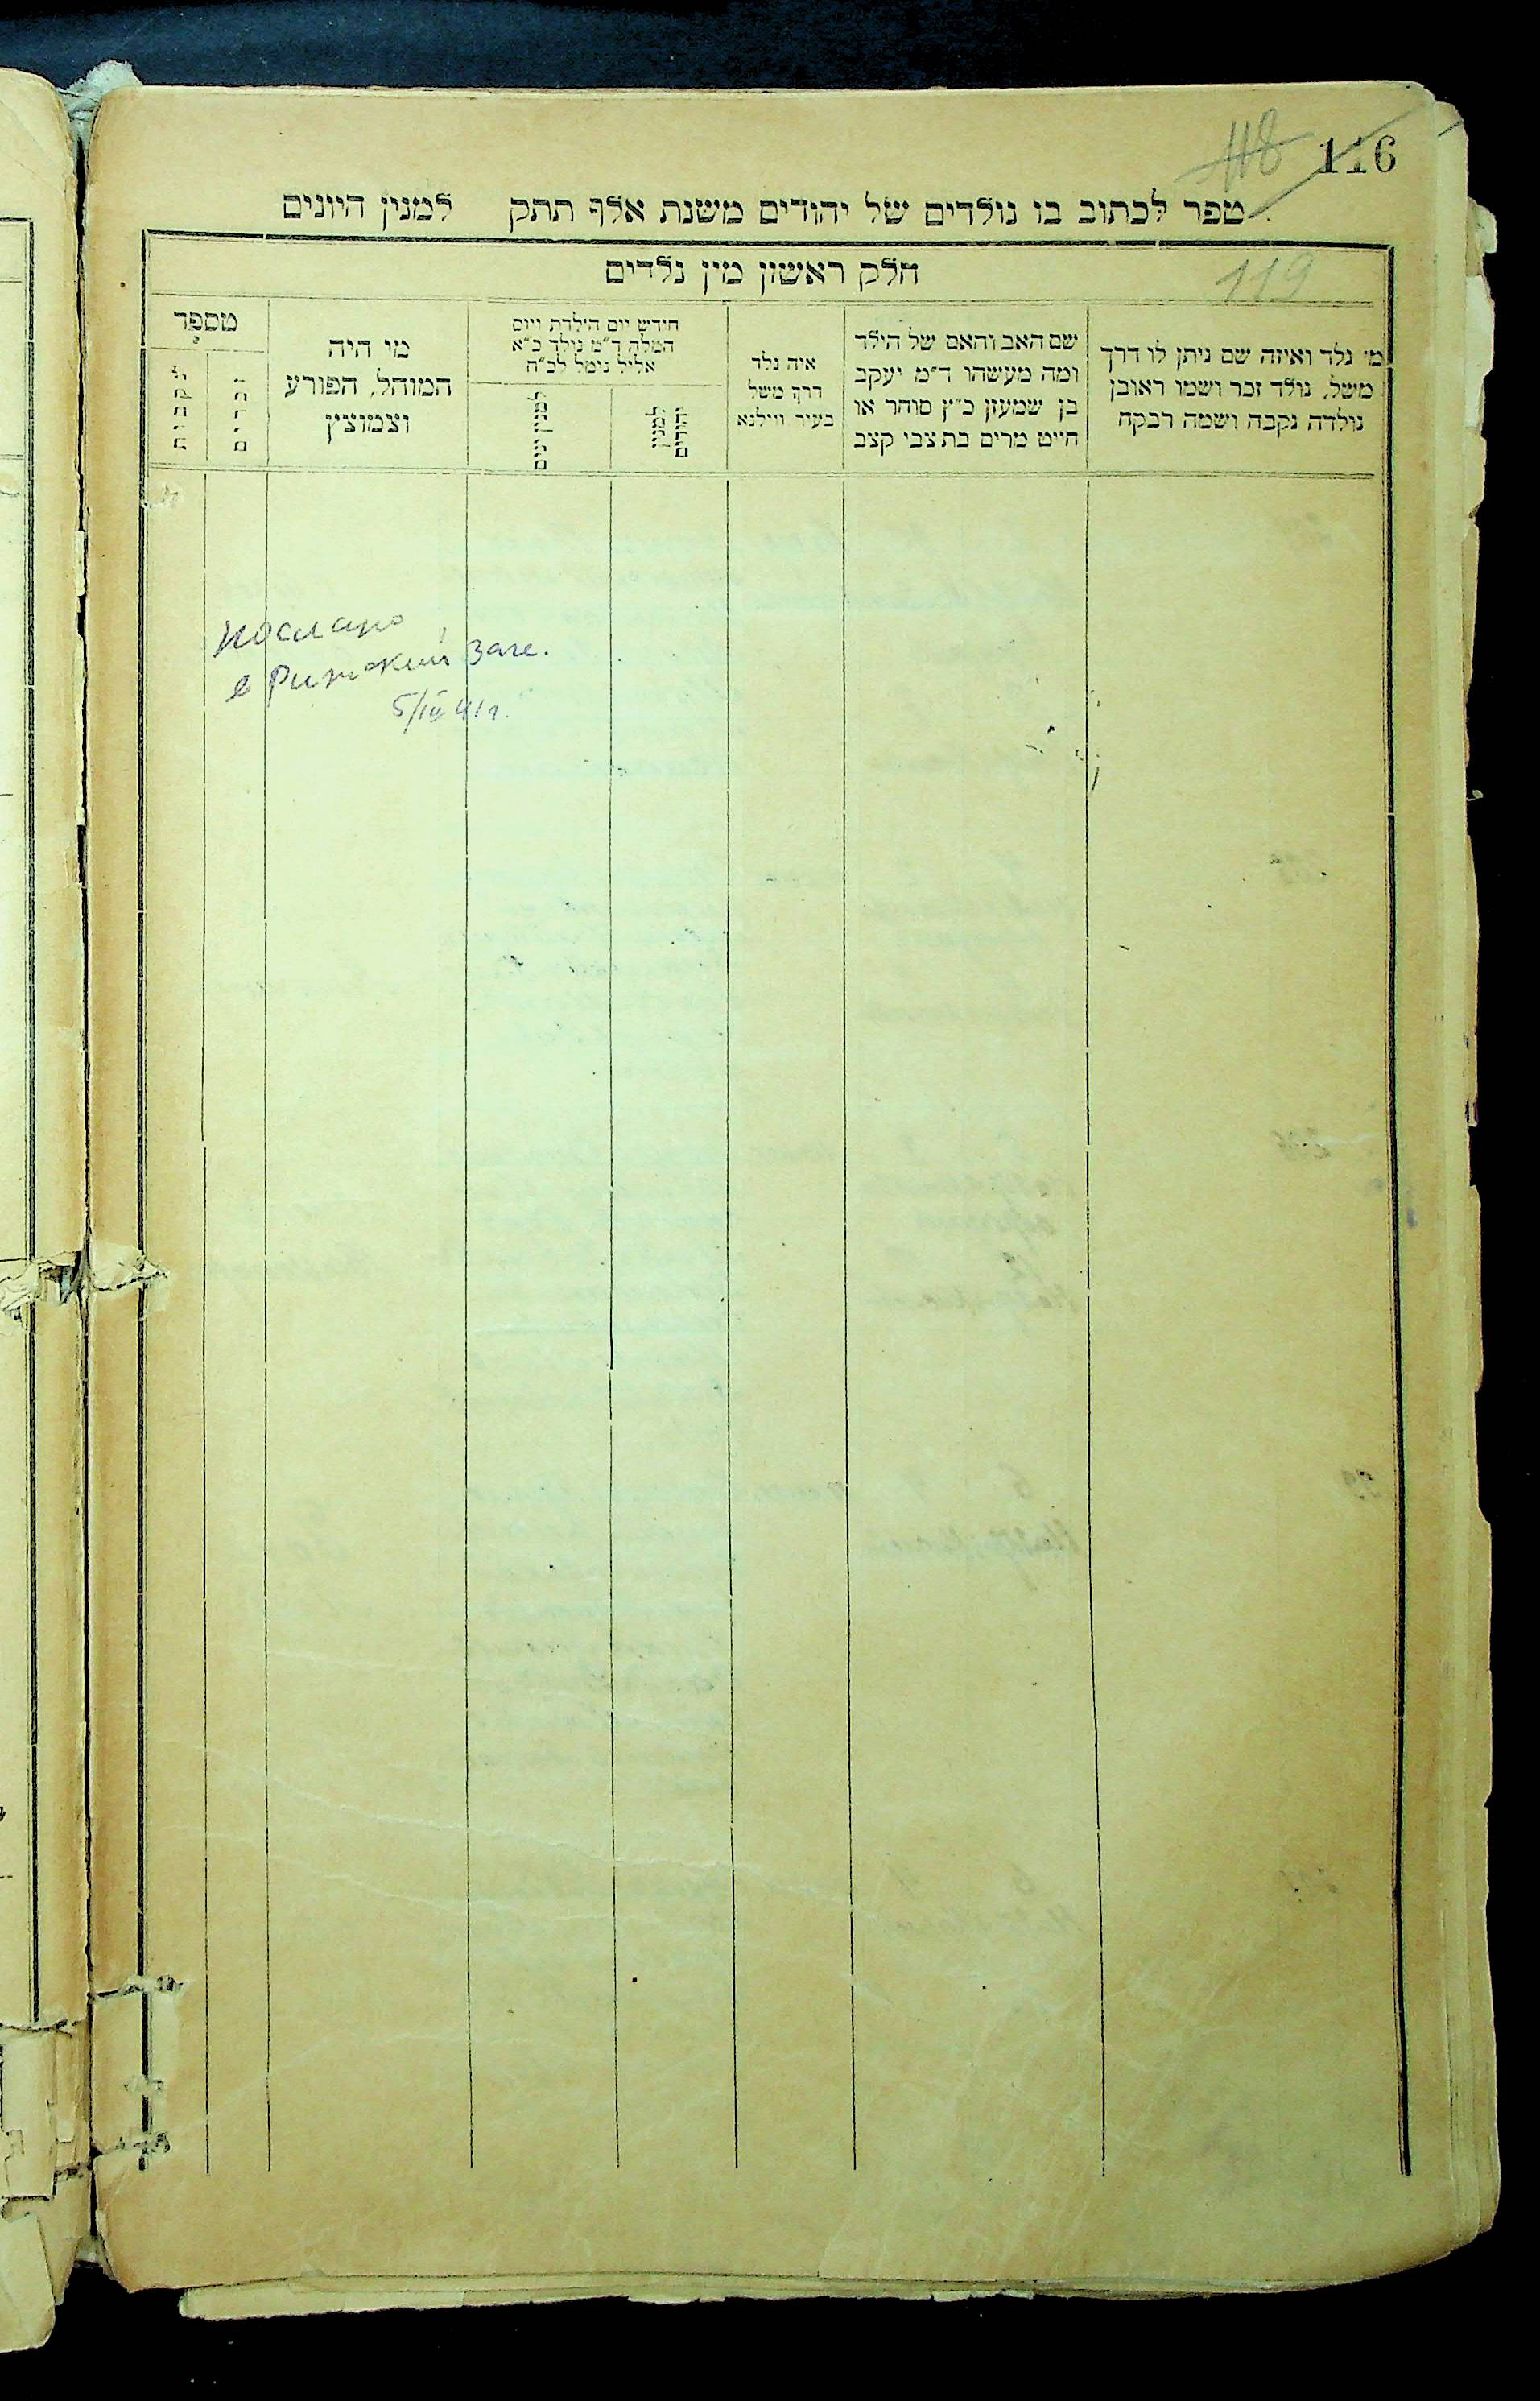 118 116
ספר לכתוב בו נולדים של יהודים משנת אלף תתק למנין היונים
119
חלק ראשון מין נלדים
מי נלד ואיזה שם ניתן לו דרך
משל, נולד זכר ושמו ראובן
נולדה נקבה ושמה רבקה
שם האב והאם של הילד
ומה מעשהו ד״מ יעקב
בן שמעון כ״ץ סוחר או
חייט מרים בת צבי קצב
איה נלד
דרך משל
בעיר ווילנא
חידש יום הילדת ויום
המלה ד״מ נילד כ״א
אליל נימל לכ״ח
למנין יהודים
למנין ינים
מי היה
המוהל, הפורע
וצמוצץ
מספר
זכרים
נקבות
Послано
в Рижский загс.
5/III 41 г.